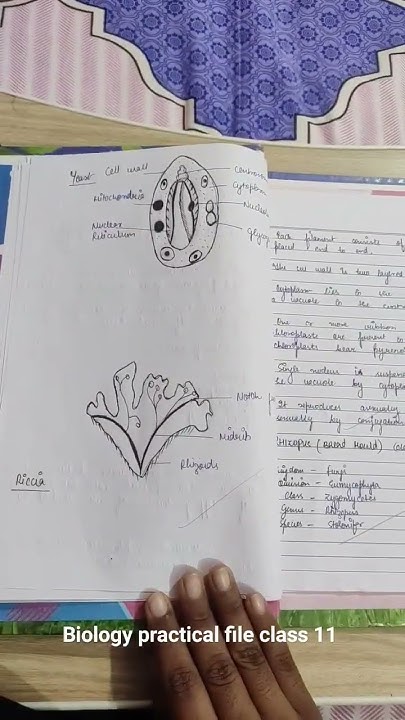 Yeast
Cell wall
Centrosome
Cytoplasm
Mitochondria
Nucleus
Nuclear
Riticulum
Glyco
Notch
Midrib
Rhizoids
Riccia
Each filament consists of
placed end to end.
The cell wall is two layered
Cytoplasm lies in the
a vacuole in the cent
One or more ribbon
chloroplasts are present in
chloroplasts bear pyrenoi
Single nucleus is suspen
vacuole by cytopla
It reproduces asexually
sexually by conjugation
RHIZOPUS (Bread Mould)
Kingdom - Fungi
Division - Eumycophyta
Class - Zygomycetes
Genus - Rhizopus
Species - Stolonifer
Biology practical file class 11